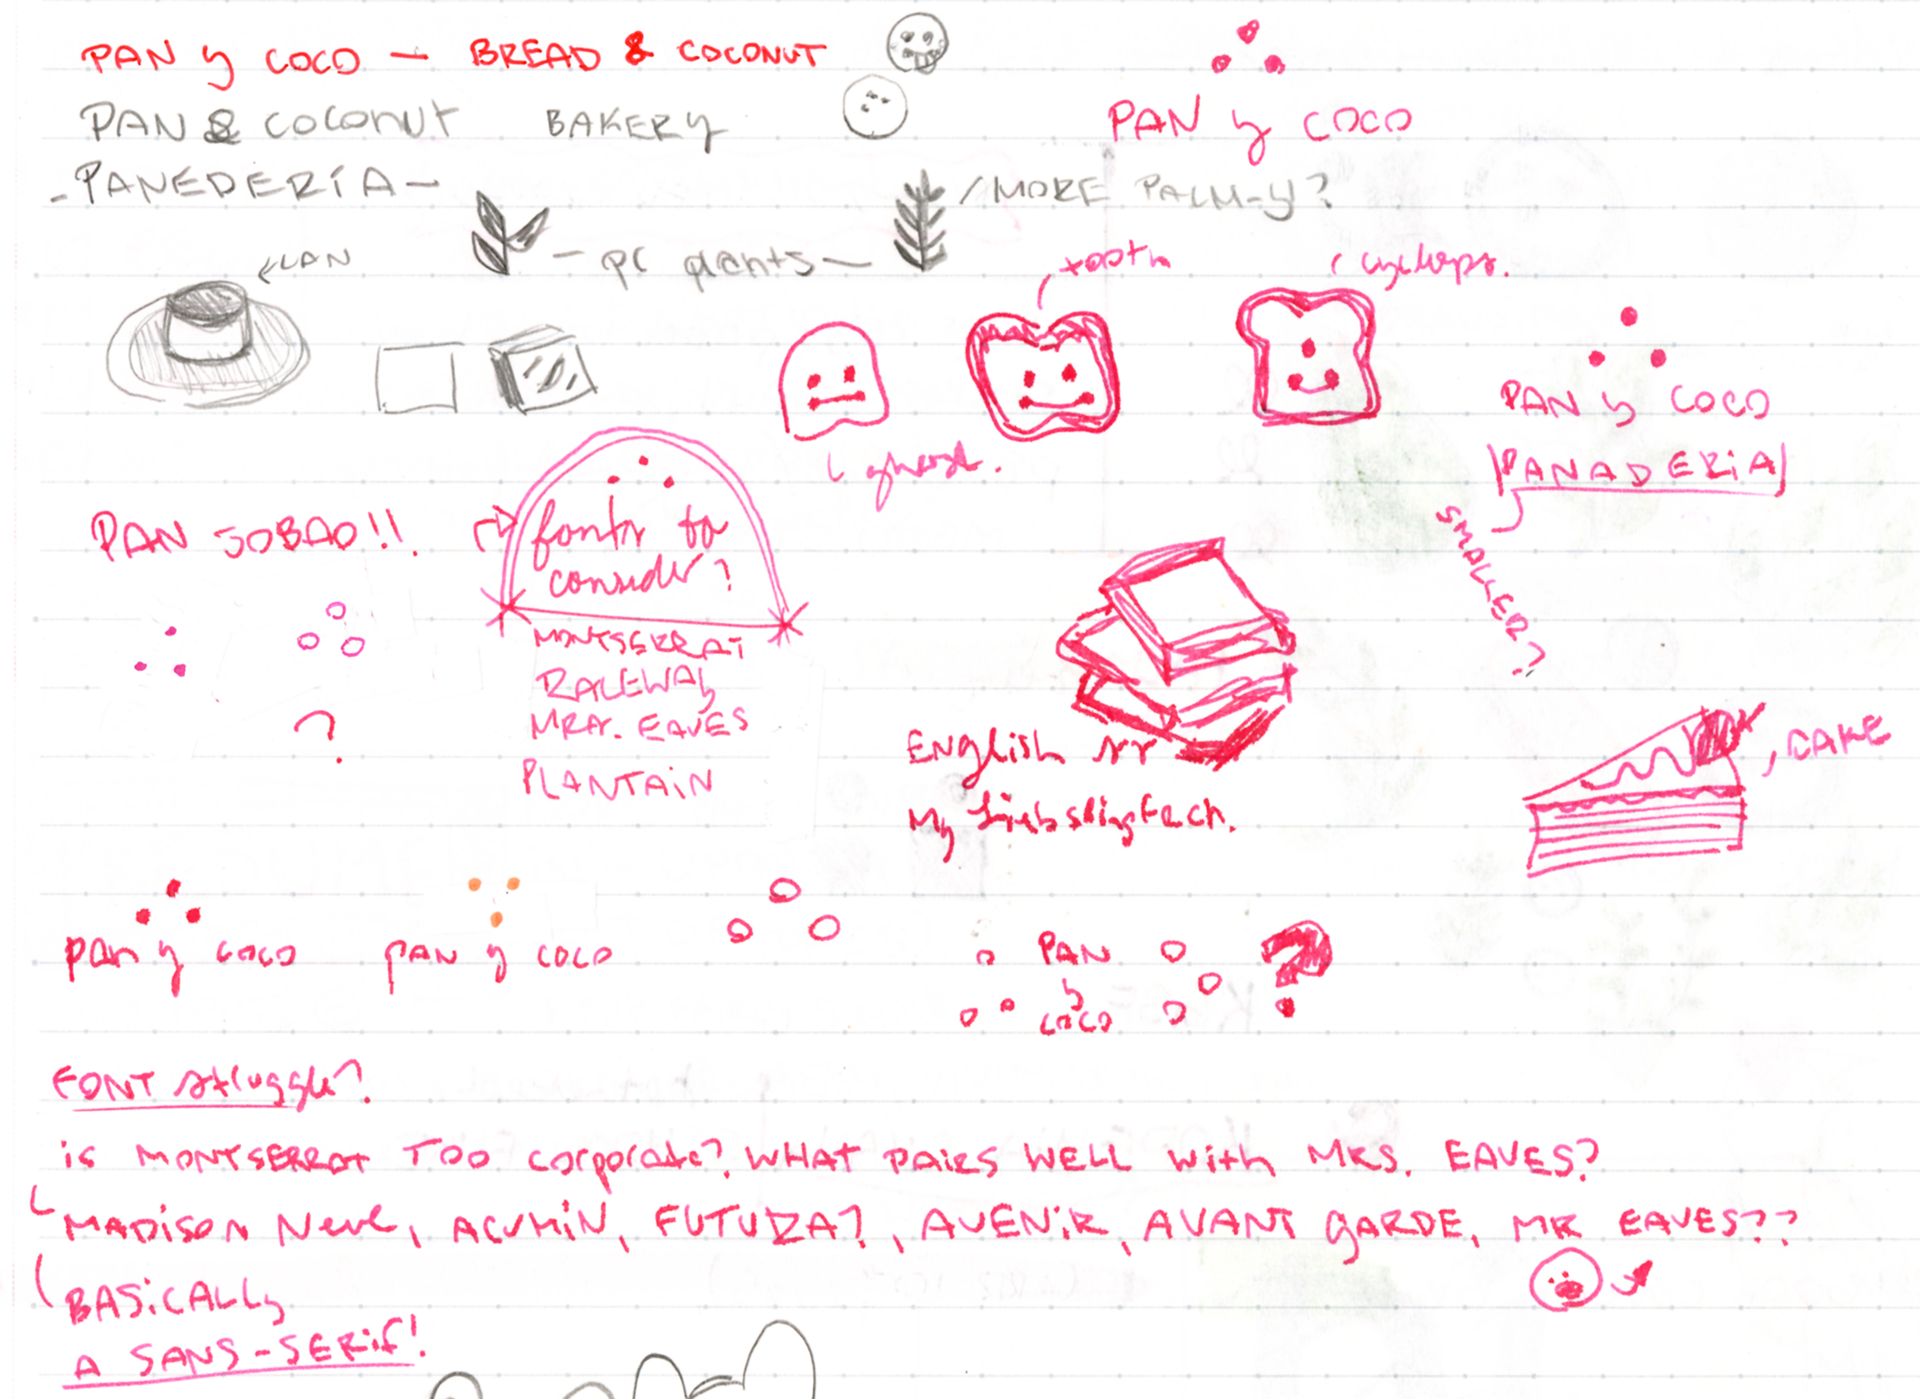 PAN y COCO — BREAD & COCONUT
PAN & COCONUT BAKERY
PAN y COCO
- PANEDERÍA -
/MORE PALM-Y?
- pc plants -
FLAN
tooth
cyclops.
ghost.
PAN y COCO
|PANADERiA|
SMALLER?
PAN SOBAO!!
fonts to
consider?
MONTSERRAT
RALEWAY
MRS. EAVES
PLANTAIN
?
English is
My Lieblingsfach.
CAKE
pan y coco
pan y coco
PAN
y
COCO
?
FONT struggle?
is MONTSERRAT TOO corporate? WHAT PAIRS WELL with MRS. EAVES?
MADISON Neue, ACUMiN, FUTURA?, AVENiR, AVANT GARDE, MR EAVES??
BASiCALLY
A SANS-SERif!